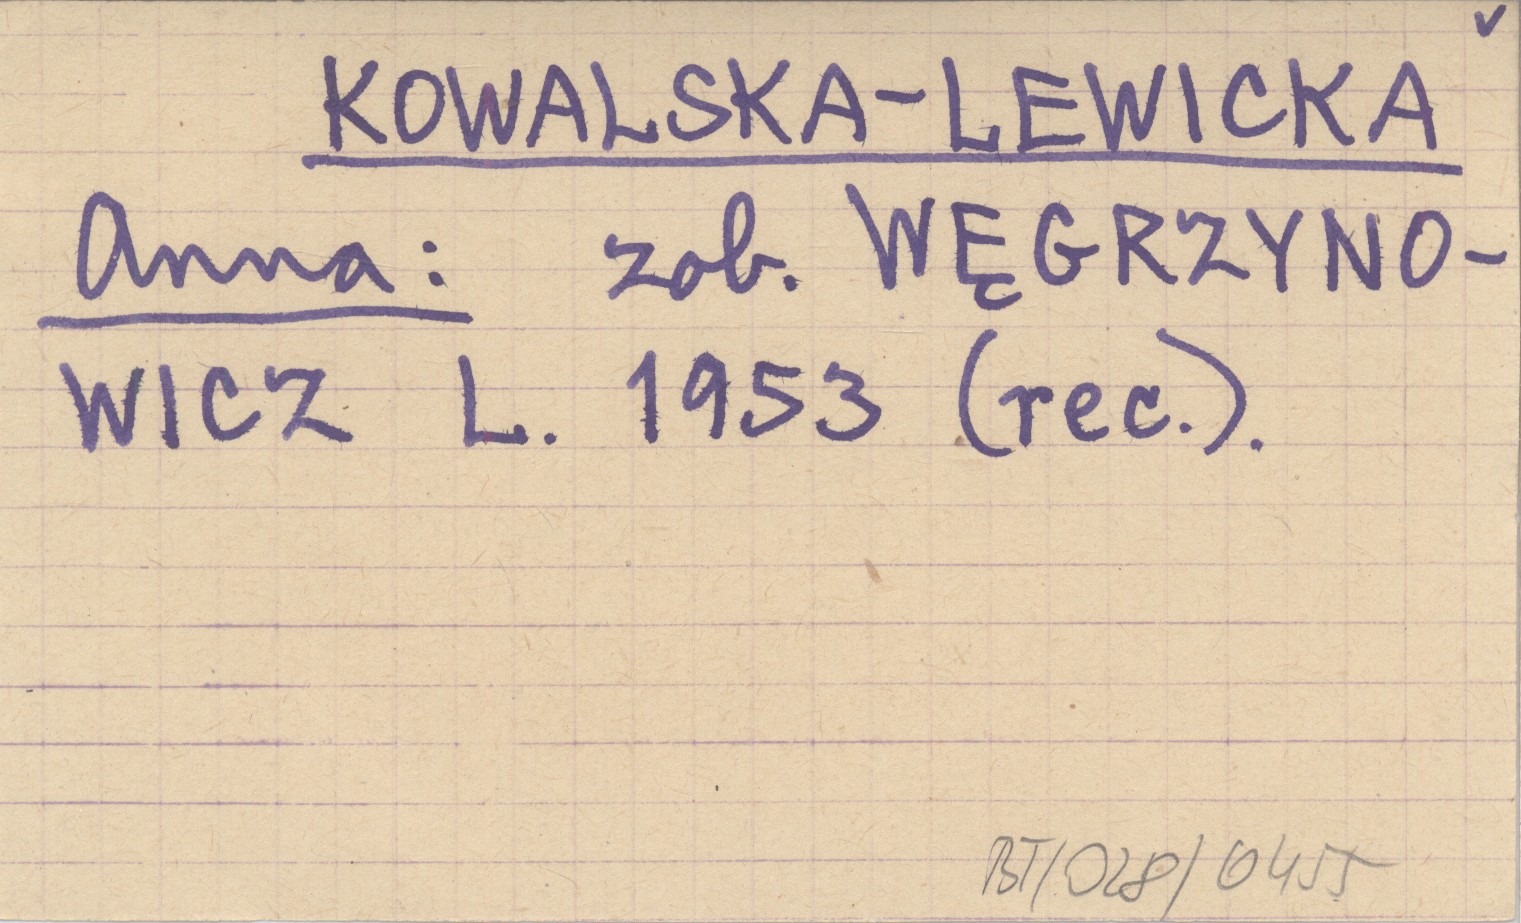 KOWALSKA-LEWICKA
Anna: zob. WĘGRZYNO-
WICZ L. 1953 (rec.).
BT/028/0455